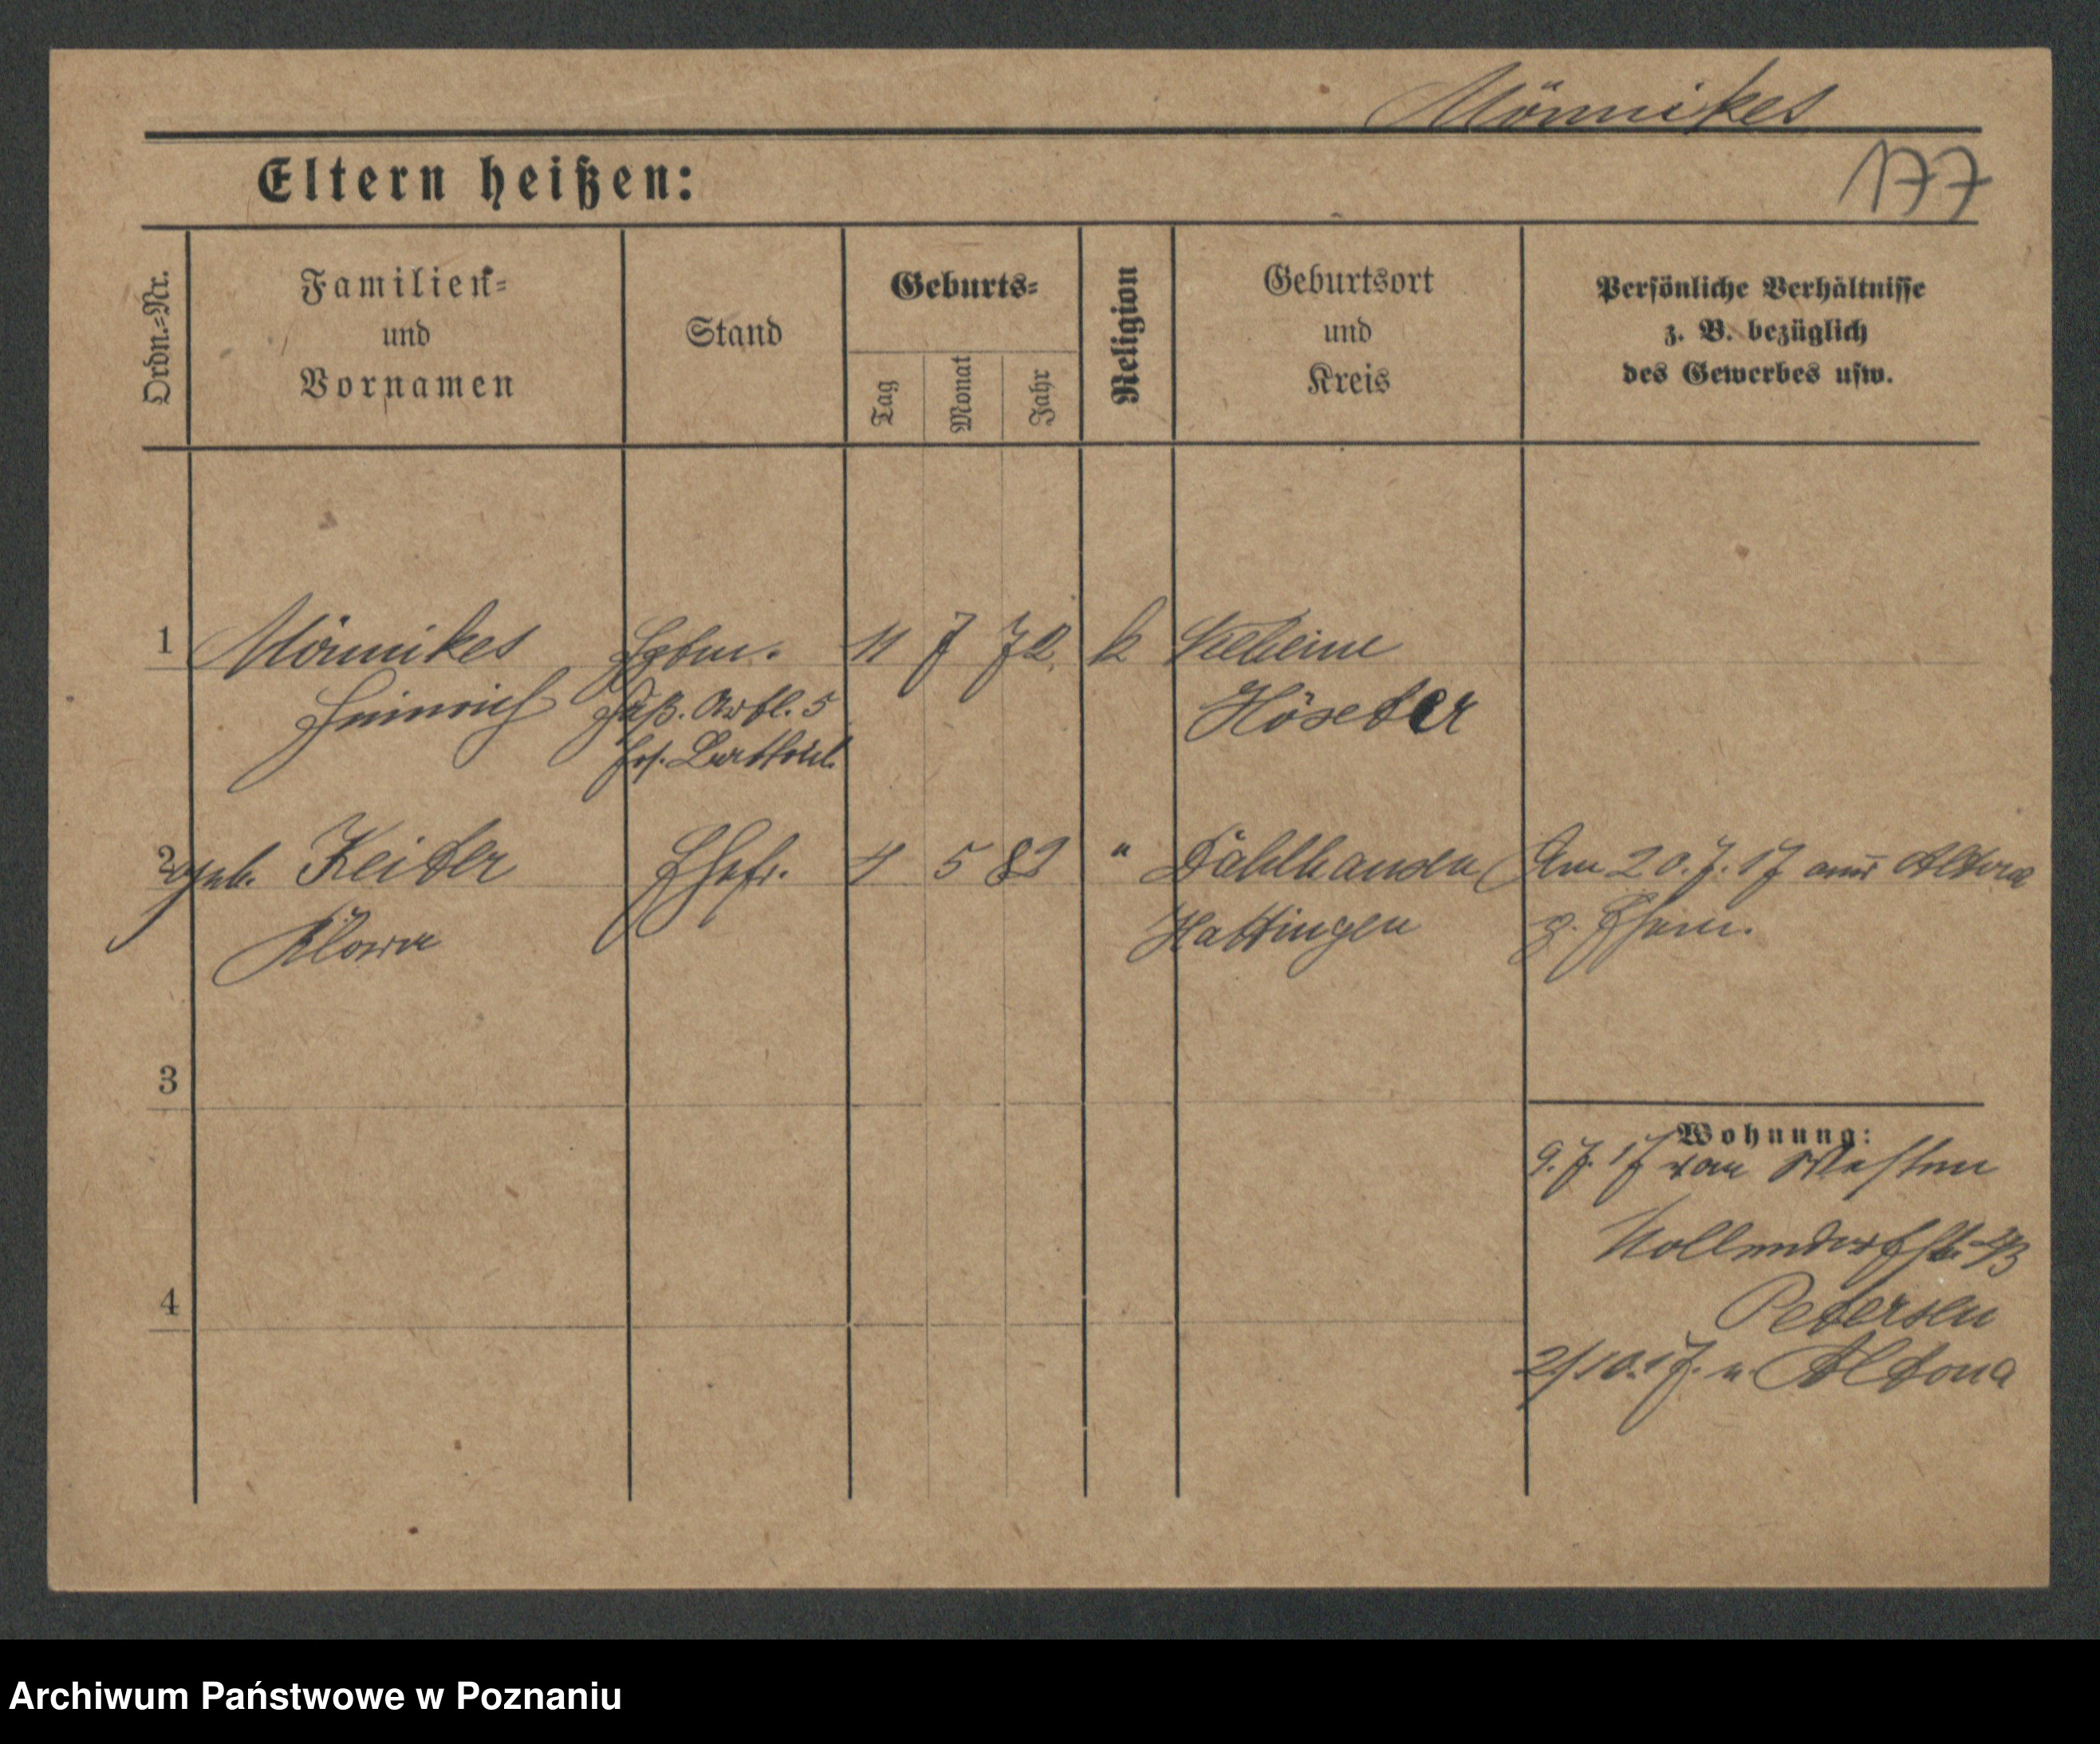 Mönnikes
177
Eltern heißen:
Ordn.-Nr.
Familien-
und
Vornamen
Stand
Geburts-
Tag
Monat
Jahr
Religion
Geburtsort
und
Kreis
Persönliche Verhältnisse
z. B. bezüglich
des Gewerbes usw.
1 Mönnikes Hptm. 11 7 72 k
Heinrich Fuß. Artl. 5
Höxter
2 geb. Keiter Ehefr. 4 5 82 " Dahlhausen Am 20.7.17 aus Altona
Klara Hattingen z. Ehem.
3
Wohnung:
9.7.17 von Westen
Nollendorfstr. 43
4
Petersen
2/10.17. n. Altona
Archiwum Państwowe w Poznaniu